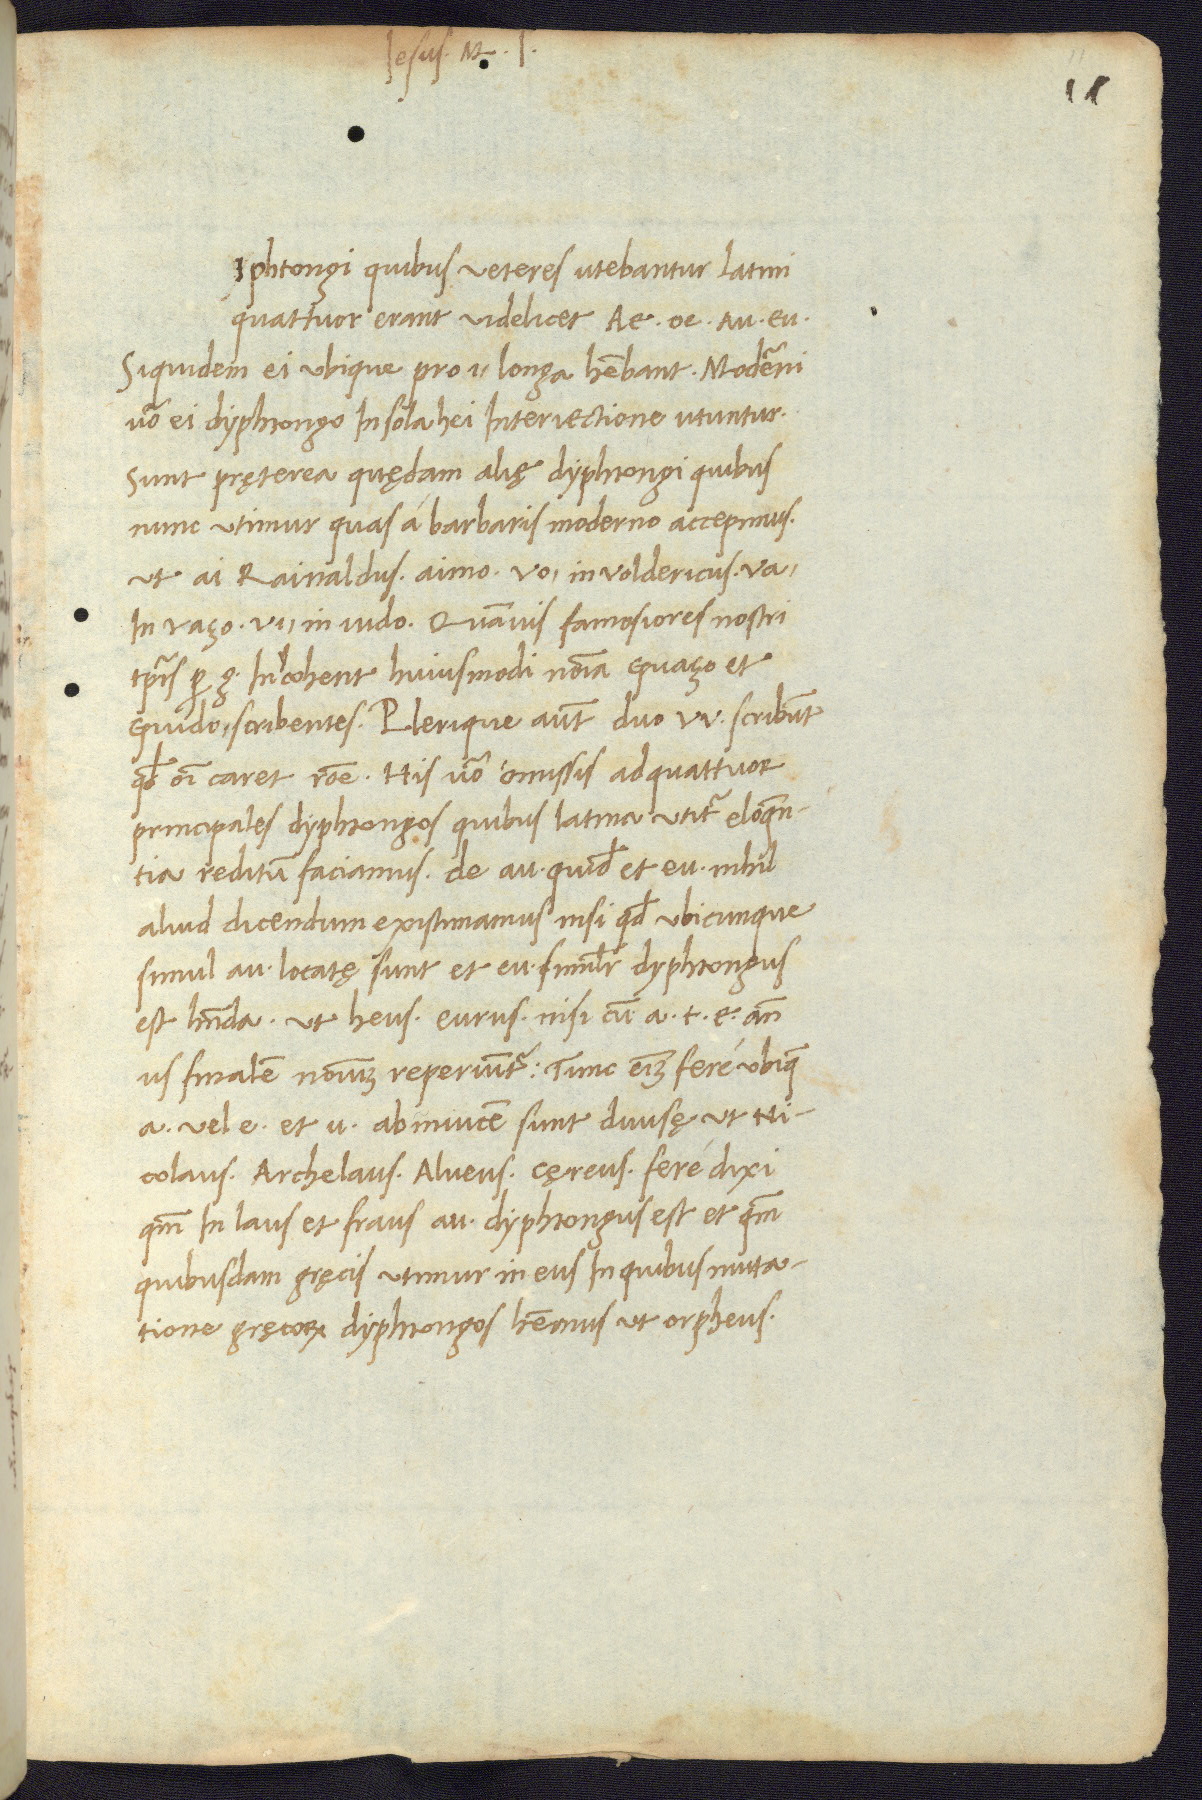 Jesus. M. J.
11
11
yphtongi quibus veteres utebantur latini
quattuor erant videlicet Ae. oe. Au. eu.
Siquidem ei ubique pro i, longa hēbant. Modern̄i
uō ei dyphtongo In sola hei Interiectione utuntur.
Sunt pręterea quędam alię dyphtongi quibus
nunc utimur quas á barbaris moderno accepimus.
ut ai Rainaldus. aimo. vo, in voldericus. va,
In vaʒo. vi, in uido. Quāuis famosiores nostri
tꝑis ꝑ g. Inchohent huiusmodi noīa Guaʒo et
Guido, scribentes. Plerique aūt duo vv. scribūt
qđ oī caret rōe. His uō omissis ad quattuor
principales dyphtongos quibus latina utit᷑ eloqn̄-
tia reditū faciamus. de au. quid̄ et eu. nihil
aliud dicendum existimamus nisi qđ ubicunque
simul au. locatę sunt et eu. simil̄r dyphtongus
est hn̄da. ut heus. eurus. nisi cū a. t. e. an̄
us finalē noīuʒ reperiūt᷑: Tunc eīʒ feré ubiq̄
a. vel e. et u. ab inuicē sunt diuisę ut Ni-
colaus. Archelaus. Alueus. cęreus. feré dixi
qm̄ In laus et fraus au. dyphtongus est et qm̄
quibusdam gręcis utimur in eus In quibus muta-
tione gręcoꝝ dyphtongos hēmus ut orpheus.